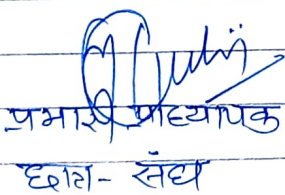 प्रभारी प्राध्यापक
छात्र- संघ